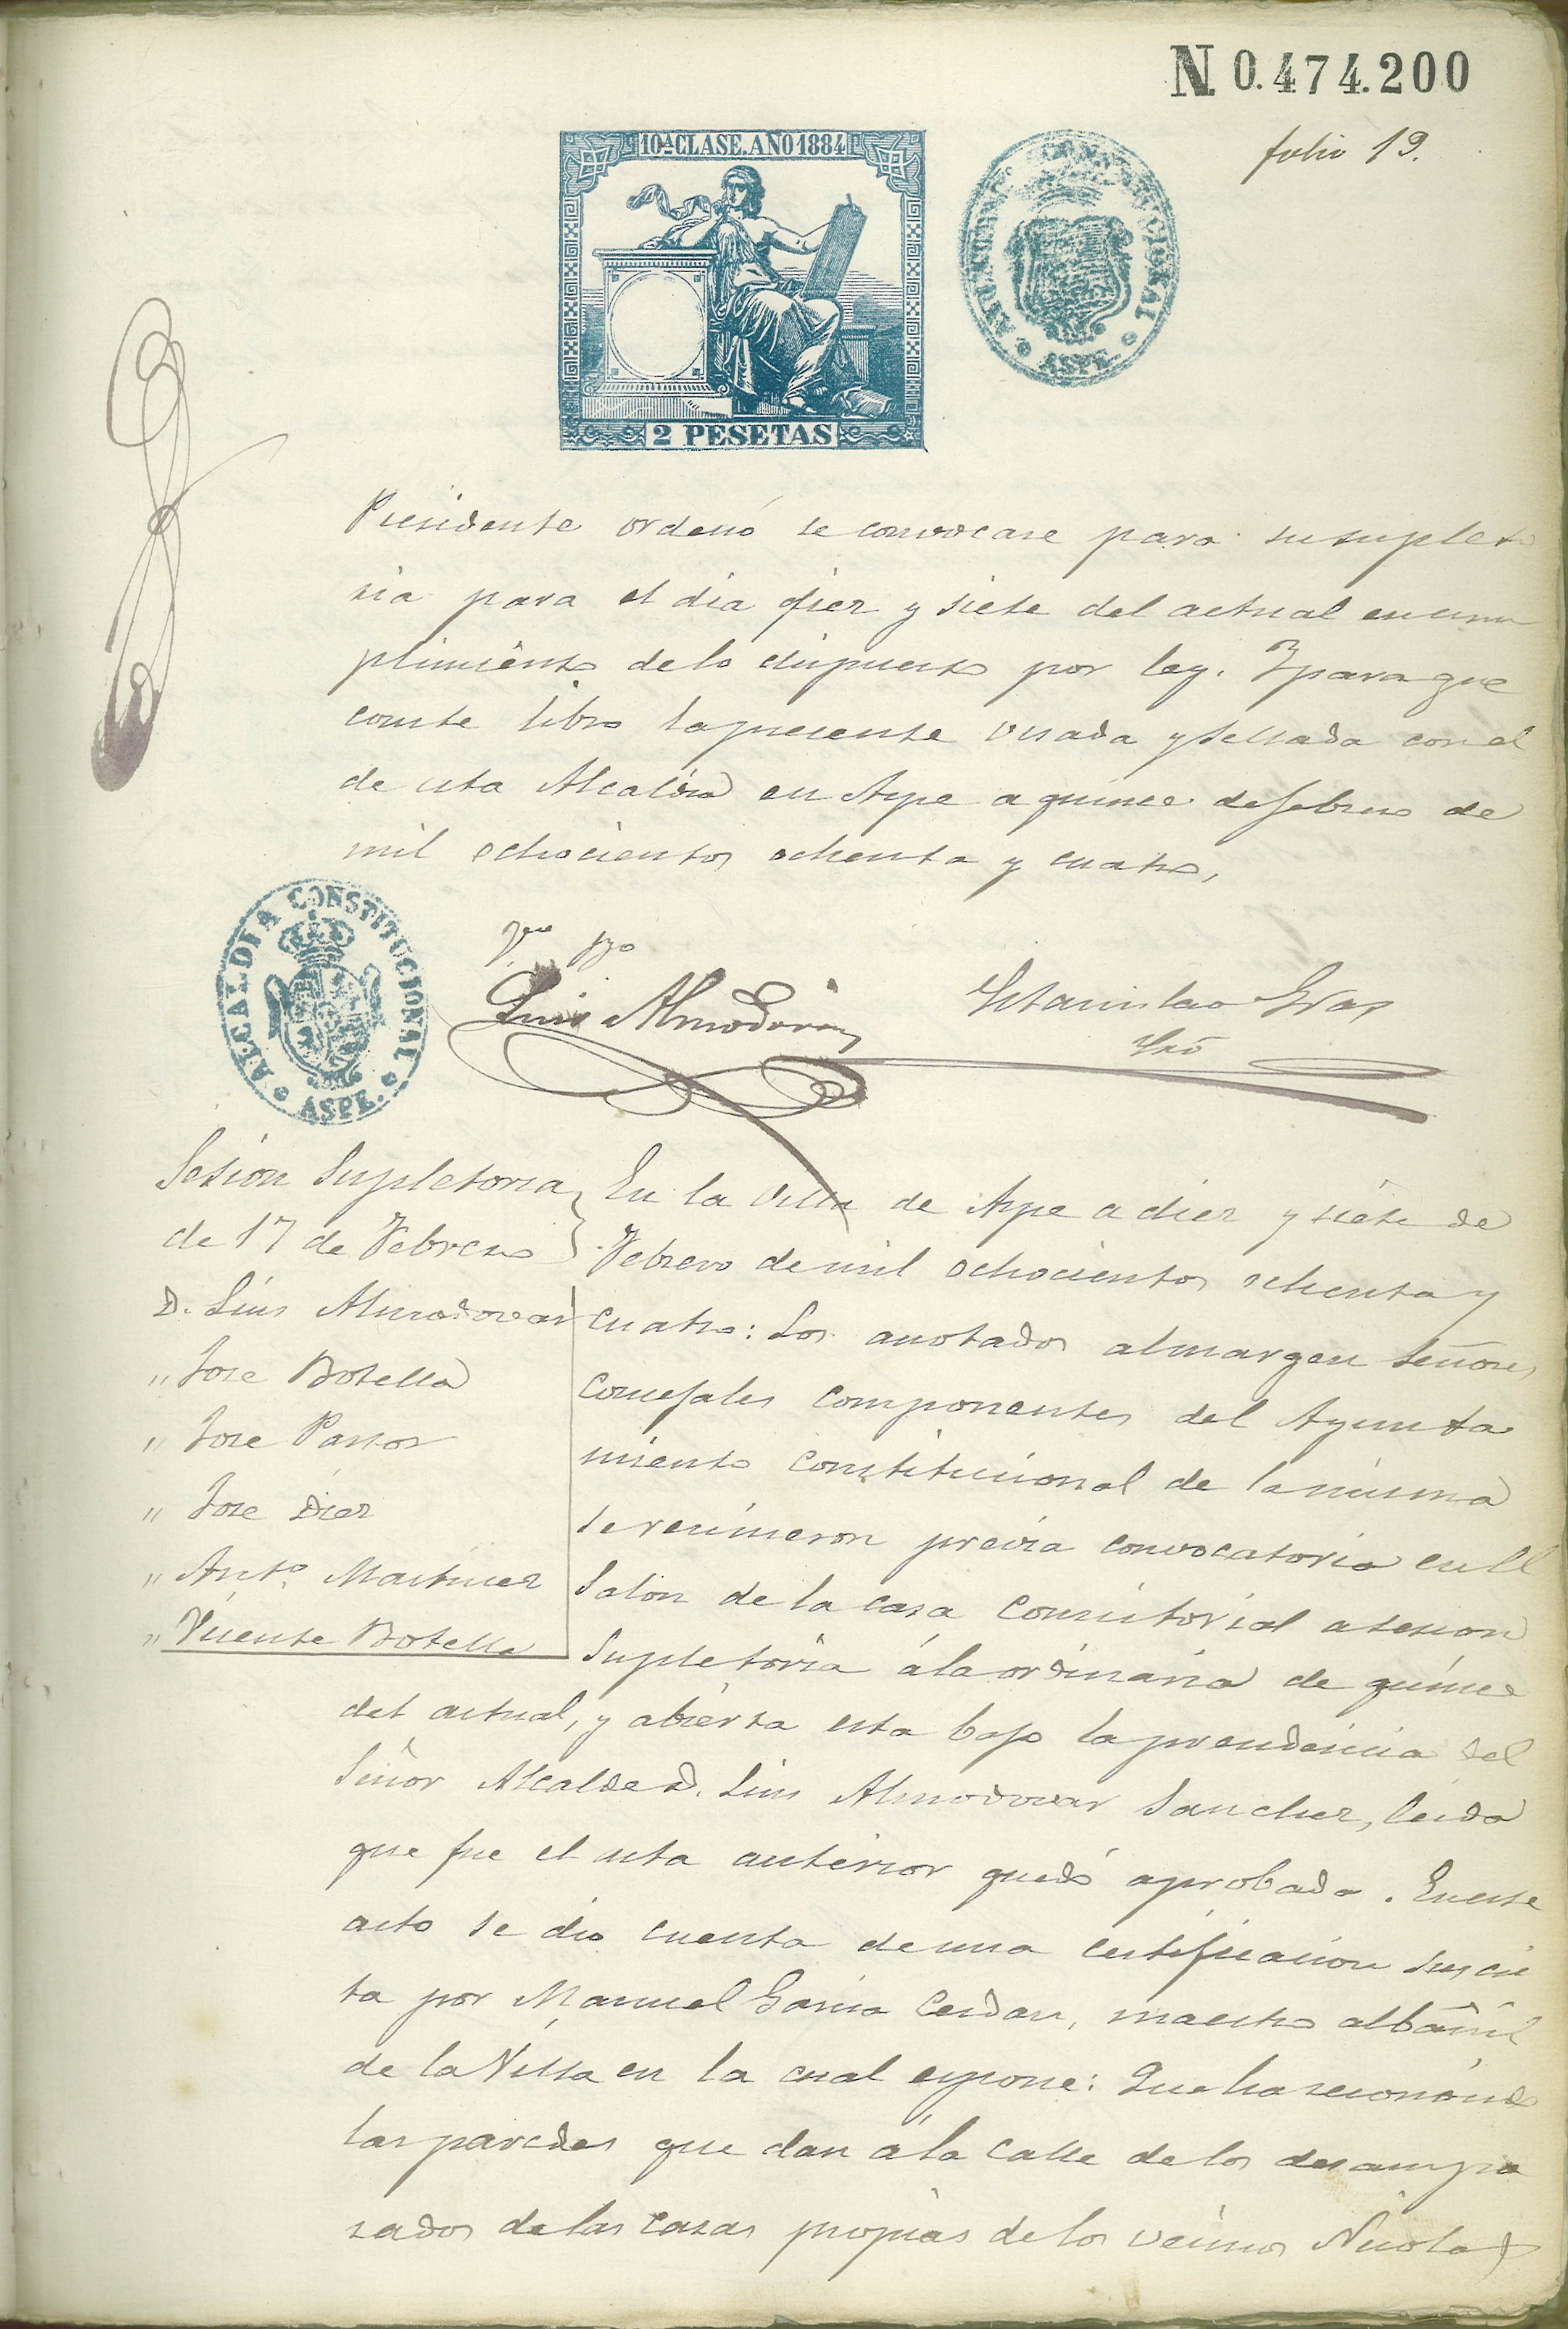 N. 0.474.200
folio 19.
10ª CLASE. AÑO 1884
2 PESETAS
ALCALDIA CONSTITUCIONAL
ASPE.
Presidente ordenó se convocase para su supleto
ria para el dia diez y siete del actual en cum
plimiento de lo dispuesto por ley. Y para que
conste libro la presente visada y sellada con el
de esta Alcaldia en Aspe a quince de febrero de
mil ochocientos ochenta y cuatro,
ALCALDIA CONSTITUCIONAL
ASPE.
Vto Bno
Luis Almodovar
Estanislao Gras
Srio
Sesion Supletoria
de 17 de Febrero
D. Luis Almodovar
" Jose Botella
" Jose Pastor
" Jose Diez
" Antº. Martinez
" Vicente Botella
En la Villa de Aspe a diez y siete de
Febrero de mil ochocientos ochenta y
cuatro: Los anotados al margen Señores
Concejales componentes del Ayunta
miento constitucional de la misma
se reunieron previa convocatoria en el
Salon de la casa Consistorial a sesion
Supletoria á la ordinaria de quince
del actual, y abierta esta bajo la presidencia del
Señor Alcalde D. Luis Almodovar Sanchez, leida
que fue el acta anterior quedó aprobada. En este
acto se dio cuenta de una certificacion suscri
ta por Manuel Garcia Cerdan, maestro albañil
de la Villa en la cual espone: Que ha reconocido
las paredes que dan á la calle de los desampa
rados de las casas propias de los vecinos Nicolas